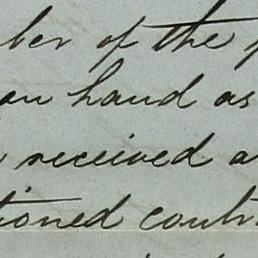 ber of the
on hand as
received a
tioned contr